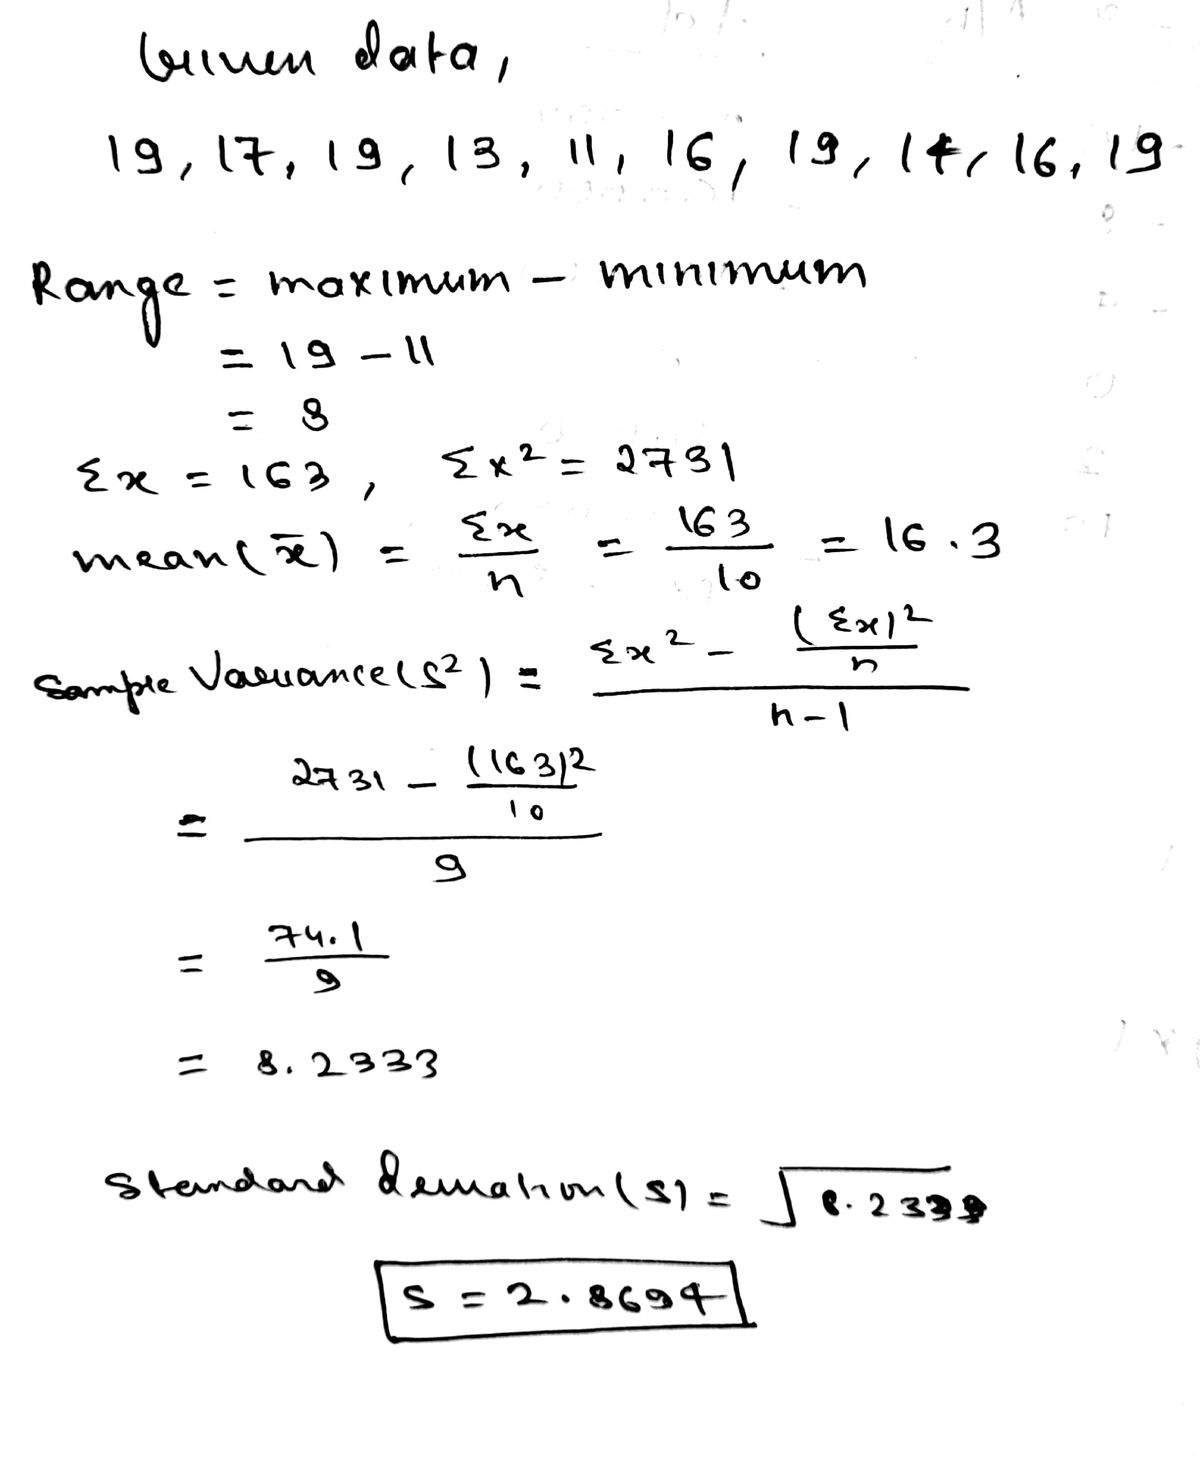 Given data,
19, 17, 19, 13, 11, 16, 19, 14, 16, 19
Range = maximum - minimum
= 19 - 11
= 8
Σx = 163, Σx² = 2731
mean(x̄) = Σx/n = 163/10 = 16.3
Sample Variance(s²) = (Σx² - (Σx)²/n)/(n-1)
= (2731 - (163)²/10)/9
= 74.1/9
= 8.2333
Standard deviation(s) = √8.2333
s = 2.8694